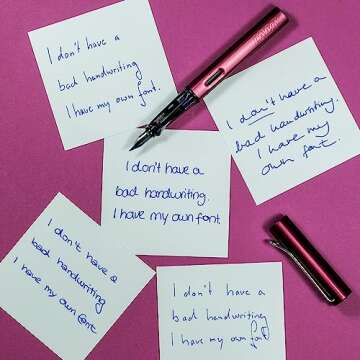 I don't have a
bad handwriting.
I have my own font.
I don't have a
bad handwriting.
I have my
own font.
I don't have a
bad handwriting.
I have my own font
I don't have a
bad handwriting
I have my own font
I don't have a
bad handwriting
I have my own font